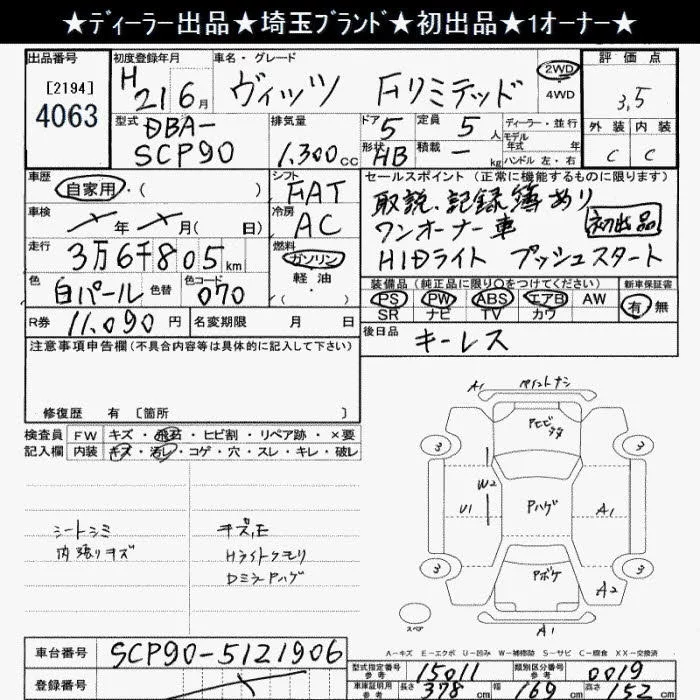 ★ディーラー出品★埼玉ブランド★初出品★1オーナー★
出品番号 初度登録年月 車名・グレード 評価点
[2194]
4063
H21 6月 ヴィッツ Fリミテッド 2WD 4WD 3,5
型式 排気量 ドア 定員 ディーラー・並行 外装 内装
DBA-
SCP90 1,300cc 5 5人 モデル年式 年式
形状 HB 積載 - kg ハンドル 左・右 C C
車歴 シフト セールスポイント(正常に機能するものに限ります)
自家用・( ) FAT 取説、記録簿あり
車検 年 月( 日) 冷房 AC ワンオーナー車 初出品
走行 3万6千805km 燃料 ガソリン HIDライト プッシュスタート
軽油 ( )
色 白パール 色替 色コード 070
装備品(純正品に限り○をつけてください) 新車保証書
PS PW ABS エアB AW 有 無
SR ナビ TV カワ
R券 11,090円 名変期限 月 日 後日品 キーレス
注意事項申告欄(不具合内容等は具体的に記入して下さい)
修復歴 有 [箇所 ]
検査員 FW キズ・飛石・ヒビ割・リペア跡・×要
記入欄 内装 キズ・汚レ・コゲ・穴・スレ・キレ・破レ
シートシミ
内張りキズ
キズ,E
Hライトクモリ
Dミラーアハゲ
A1 ペイントナシ
3 3
W2
U1 Pハゲ A1
Pボケ
3 3
A2
スペア A1
A-キズ E-エクボ U-凹み W-補修跡 S-サビ C-腐食 XX-交換済
車台番号 SCP90-5121906
型式指定番号 参考 15011 類別区分番号 参考 0019
登録番号
車庫証明用 参考 長さ 378cm 幅 169cm 高さ 152cm